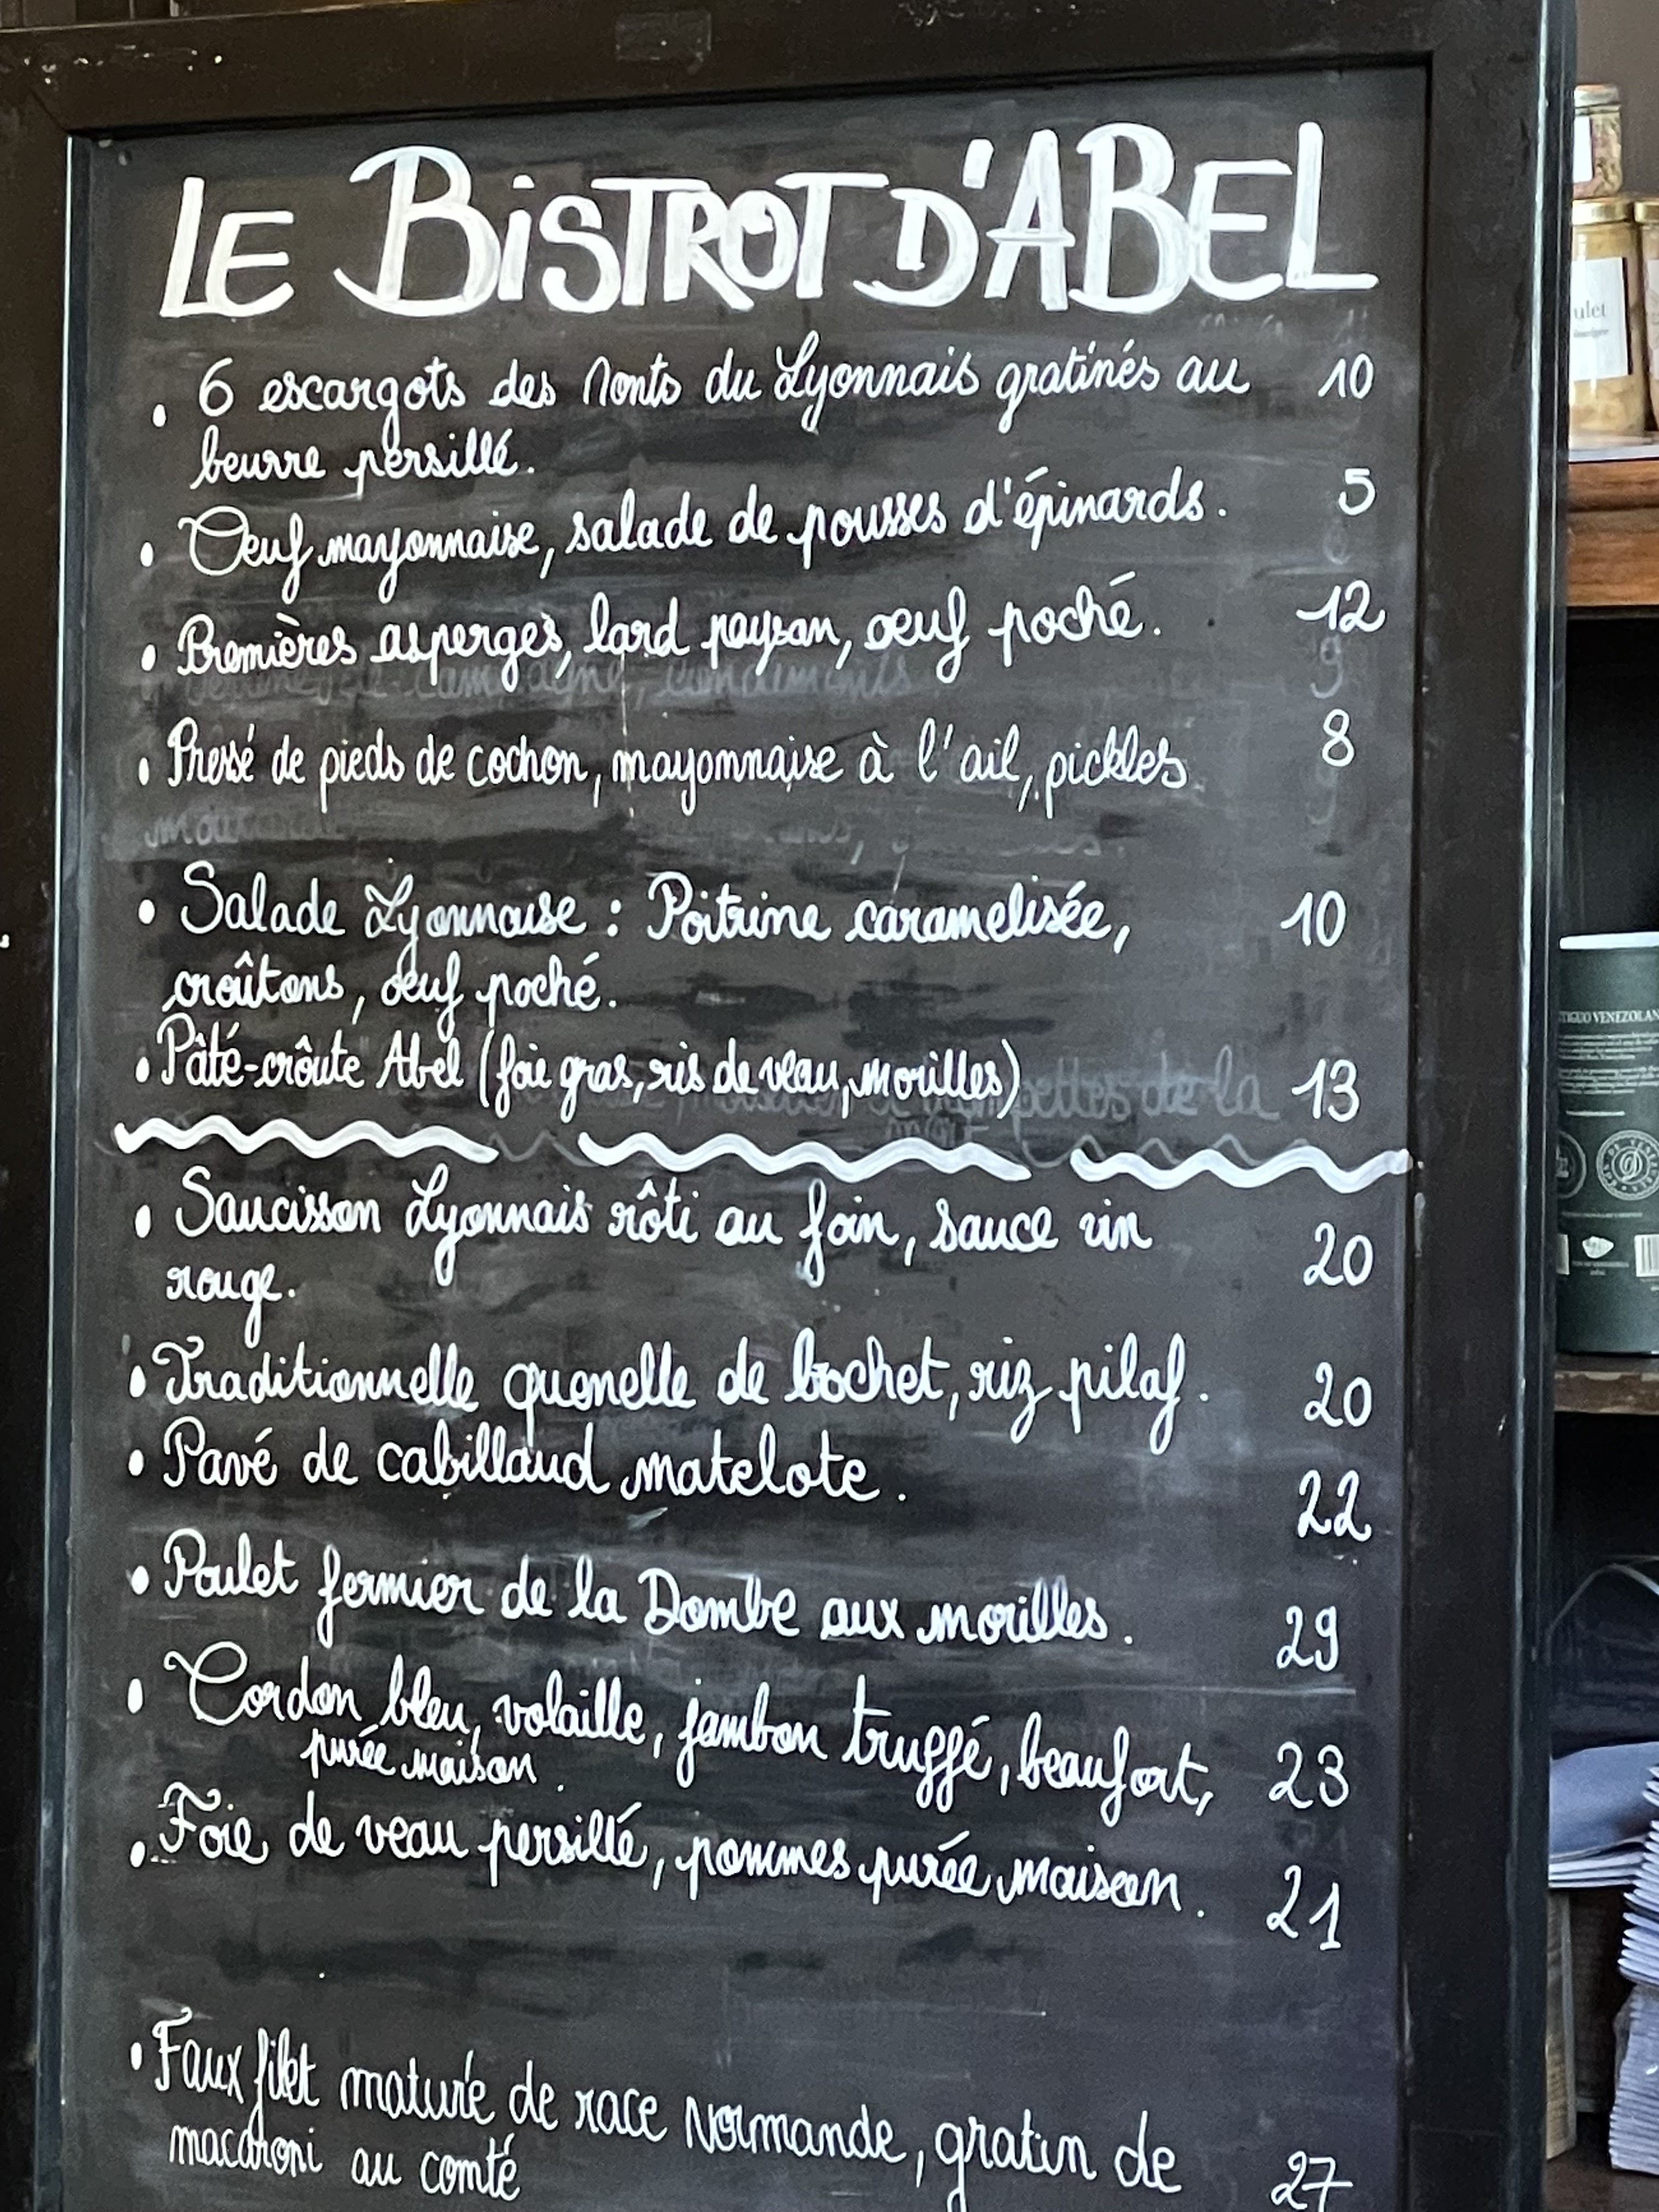 LE BISTROT D'ABEL
• 6 escargots des Monts du Lyonnais gratinés au 10
beurre persillé.
• Oeuf mayonnaise, salade de pousses d'épinards. 5
• Premières asperges, lard paysan, oeuf poché. 12
• Pressé de pieds de cochon, mayonnaise à l'ail, pickles 8
• Salade Lyonnaise : Poitrine caramelisée, 10
croûtons, oeuf poché.
• Pâté-crôute Abel (foie gras, ris de veau, morilles) 13
• Saucisson Lyonnais rôti au foin, sauce vin 20
rouge.
• Traditionnelle quenelle de brochet, riz pilaf. 20
• Pavé de cabillaud matelote. 22
• Poulet fermier de la Dombe aux morilles. 29
• Cordon bleu, volaille, jambon truffé, beaufort, 23
purée maison.
• Foie de veau persillé, pommes purée maison. 21
• Faux filet maturée de race Normande, gratin de 27
macaroni au comté
ulet
VENEZOLAN